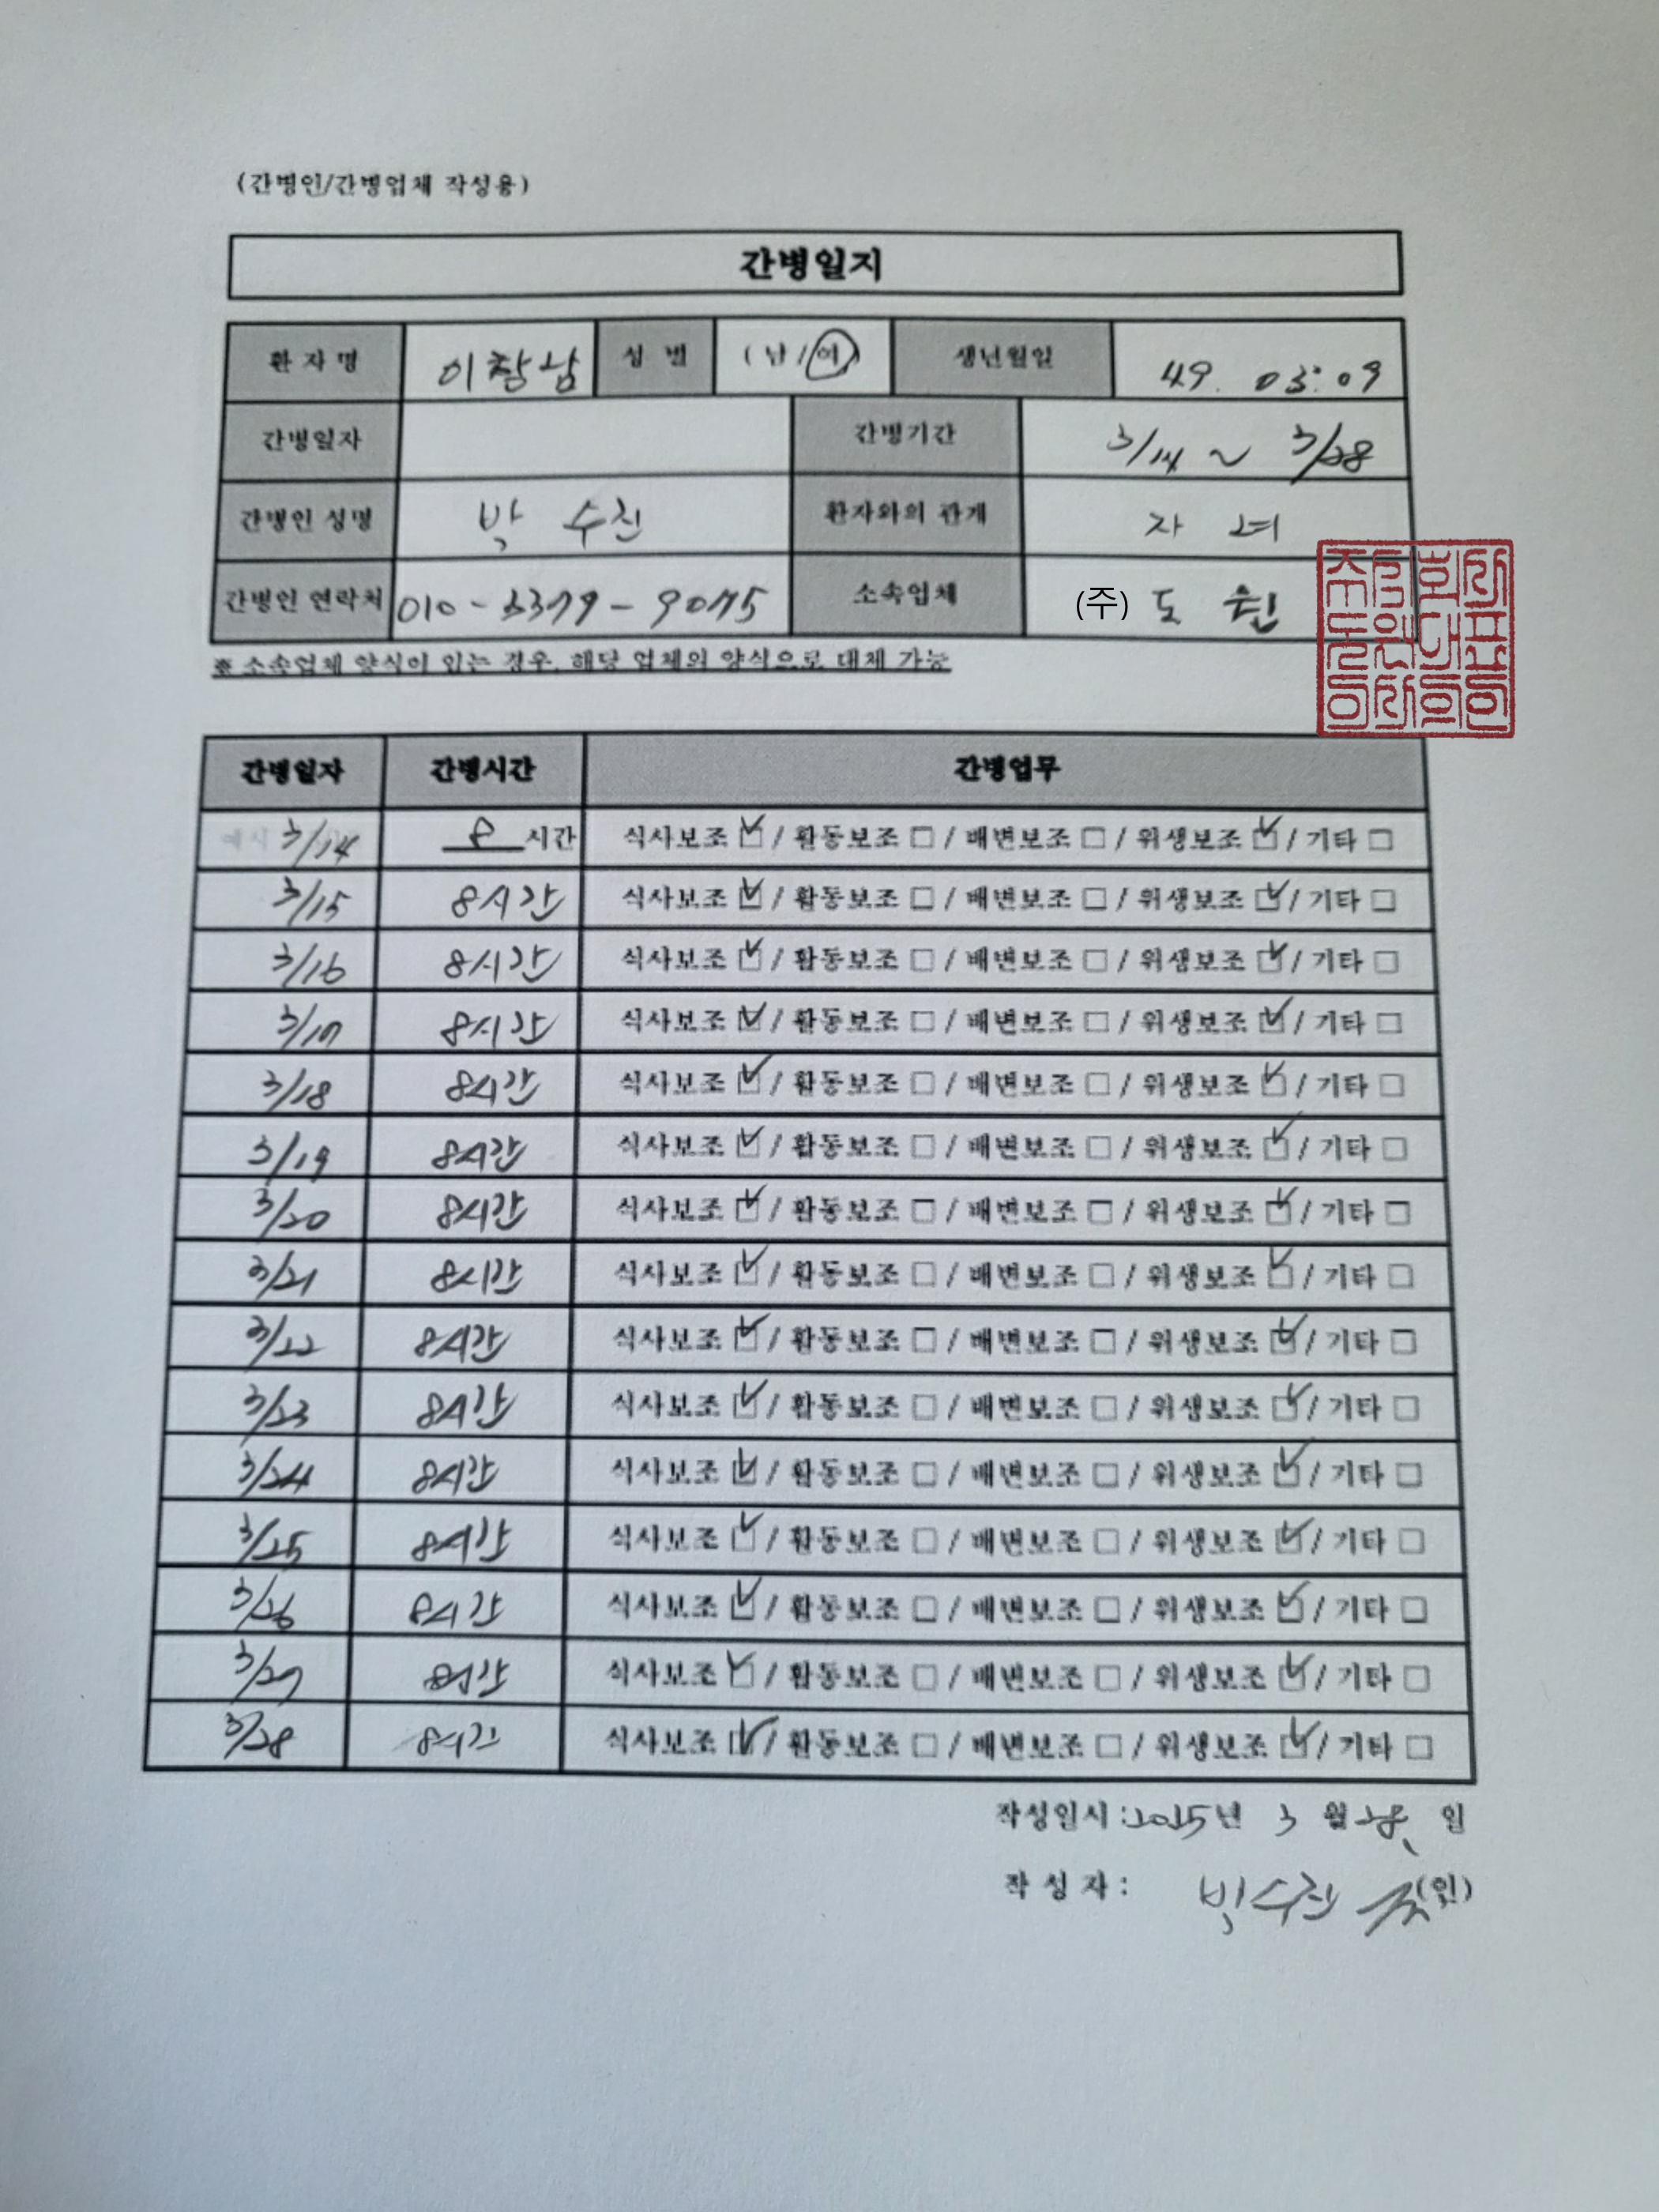 (간병인/간병업체 작성용)
간병일지
환 자 명 이참남 성 별 (남/여) 생년월일 49. 03. 09
간병일자 간병기간 3/14 ~ 3/28
간병인 성명 박 수진 환자와의 관계 자 녀
간병인 연락처 010 - 3379 - 9075 소속업체 (주) 도 원
※ 소속업체 양식이 있는 경우, 해당 업체의 양식으로 대체 가능
간병일자 간병시간 간병업무
예시 3/14 8 시간 식사보조 ☑ / 활동보조 □ / 배변보조 □ / 위생보조 ☑ / 기타 □
3/15 8시간 식사보조 ☑ / 활동보조 □ / 배변보조 □ / 위생보조 ☑ / 기타 □
3/16 8시간 식사보조 ☑ / 활동보조 □ / 배변보조 □ / 위생보조 ☑ / 기타 □
3/17 8시간 식사보조 ☑ / 활동보조 □ / 배변보조 □ / 위생보조 ☑ / 기타 □
3/18 8시간 식사보조 ☑ / 활동보조 □ / 배변보조 □ / 위생보조 ☑ / 기타 □
3/19 8시간 식사보조 ☑ / 활동보조 □ / 배변보조 □ / 위생보조 ☑ / 기타 □
3/20 8시간 식사보조 ☑ / 활동보조 □ / 배변보조 □ / 위생보조 ☑ / 기타 □
3/21 8시간 식사보조 ☑ / 활동보조 □ / 배변보조 □ / 위생보조 ☑ / 기타 □
3/22 8시간 식사보조 ☑ / 활동보조 □ / 배변보조 □ / 위생보조 ☑ / 기타 □
3/23 8시간 식사보조 ☑ / 활동보조 □ / 배변보조 □ / 위생보조 ☑ / 기타 □
3/24 8시간 식사보조 ☑ / 활동보조 □ / 배변보조 □ / 위생보조 ☑ / 기타 □
3/25 8시간 식사보조 ☑ / 활동보조 □ / 배변보조 □ / 위생보조 ☑ / 기타 □
3/26 8시간 식사보조 ☑ / 활동보조 □ / 배변보조 □ / 위생보조 ☑ / 기타 □
3/27 8시간 식사보조 ☑ / 활동보조 □ / 배변보조 □ / 위생보조 ☑ / 기타 □
3/28 8시간 식사보조 ☑ / 활동보조 □ / 배변보조 □ / 위생보조 ☑ / 기타 □
작성일시 : 2025년 3 월 28 일
작 성 자 : 박수진 (인)